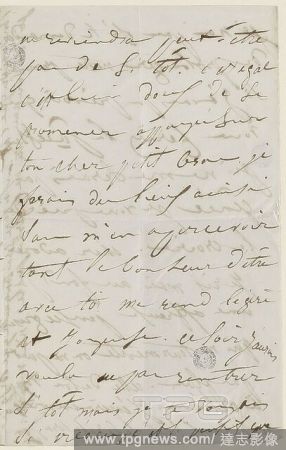 ne reviendra peut être
pas de si tôt. c'est égal
c'est bien doux de se
promener appuyée sur
ton cher petit bras. je
ferais des lieues ainsi
sans m'en apercevoir
tant le bonheur d'être
avec toi me rend légère
et joyeuse. ce soir j'aurais
voulu ne pas rentrer
si tôt mais je
TPG
www.tpgnews.com / 達志影像